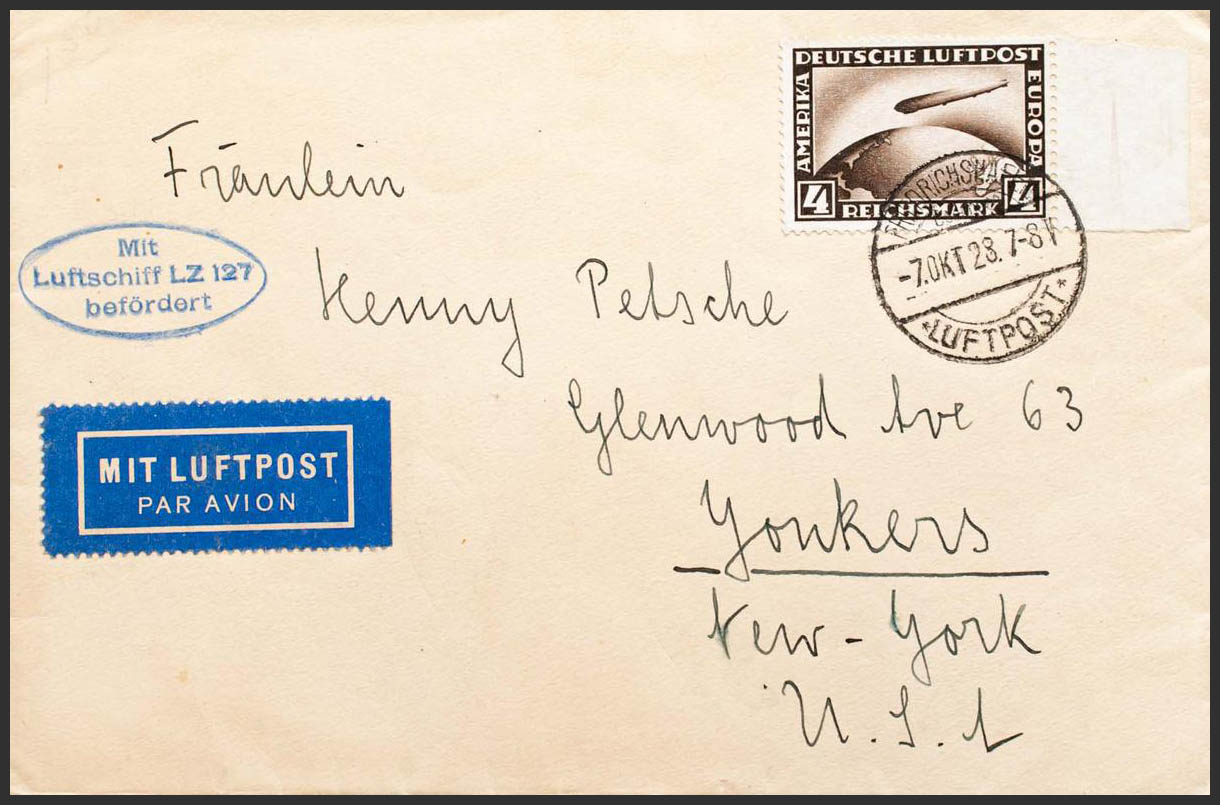 DEUTSCHE LUFTPOST
AMERIKA
EUROPA
4 REICHSMARK 4
FRIEDRICHSHAFEN
-7.OKT 28. 7-8 V
*LUFTPOST*
Fräulein
Mit
Luftschiff LZ 127
befördert
Henny Petsche
Glenwood Ave 63
MIT LUFTPOST
PAR AVION
Yonkers
New-York
U.S.A